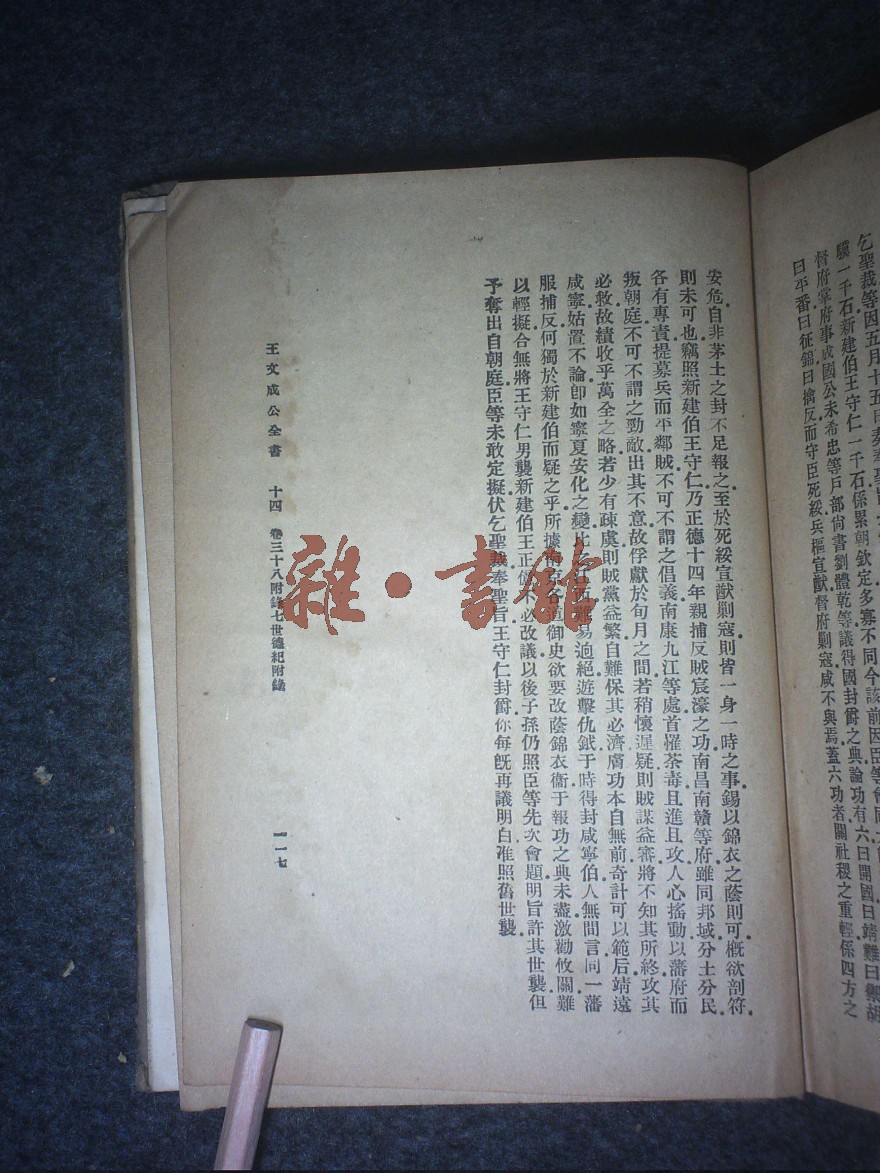 乞聖裁等因五月十五日奏奉聖
驥一千石新建伯王守仁一千石係累朝欽定多寡不同今該前因臣等會同
督府掌府事成國公朱希忠等戶部尚書劉體乾等議得國封爵之典論功有六曰開國曰靖難曰禦胡
曰平番曰征錦曰擒反而守臣死綏兵樞宣猷督府剿寇咸不與焉蓋六功者關社稷之重輕係四方之
安危自非茅土之封不足報之至於死綏宣猷剿寇則皆一身一時之事錫以錦衣之蔭則可概欲剖符
則未可也竊照新建伯王守仁乃正德十四年親捕反賊宸濠之功南昌南贛等府雖同邦域分土分民
各有專責提募兵而平鄰賊不可不謂之倡義南康九江等處首罹荼毒且進且攻人心搖動以藩府而
叛朝庭不可不謂之勁敵出其不意故俘獻於旬月之間若稍懷遲疑則賊謀益審將不知其所終攻其
必救故績收乎萬全之略若少有疎虞則賊黨益繁自難保其必濟膚功本自無前奇計可以範后靖遠
咸寧姑置不論卽如寧夏安化之變比江西難易逈絕遊擊仇鉞于時得封咸寧伯人無間言同一藩
服捕反何獨於新建伯而疑之乎所據南京各道御史欲要改蔭錦衣衞于報功之典未盡激勸攸關難
以輕擬合無將王守仁男襲新建伯王正億不必改議以後子孫仍照臣等先次會題明旨許其世襲但
予奪出自朝庭臣等未敢定擬伏乞聖裁奉聖旨王守仁封爵你每旣再議明白准照舊世襲
王文成公全書 十四 卷三十八附錄七世德紀附錄 一一七
雜·書館